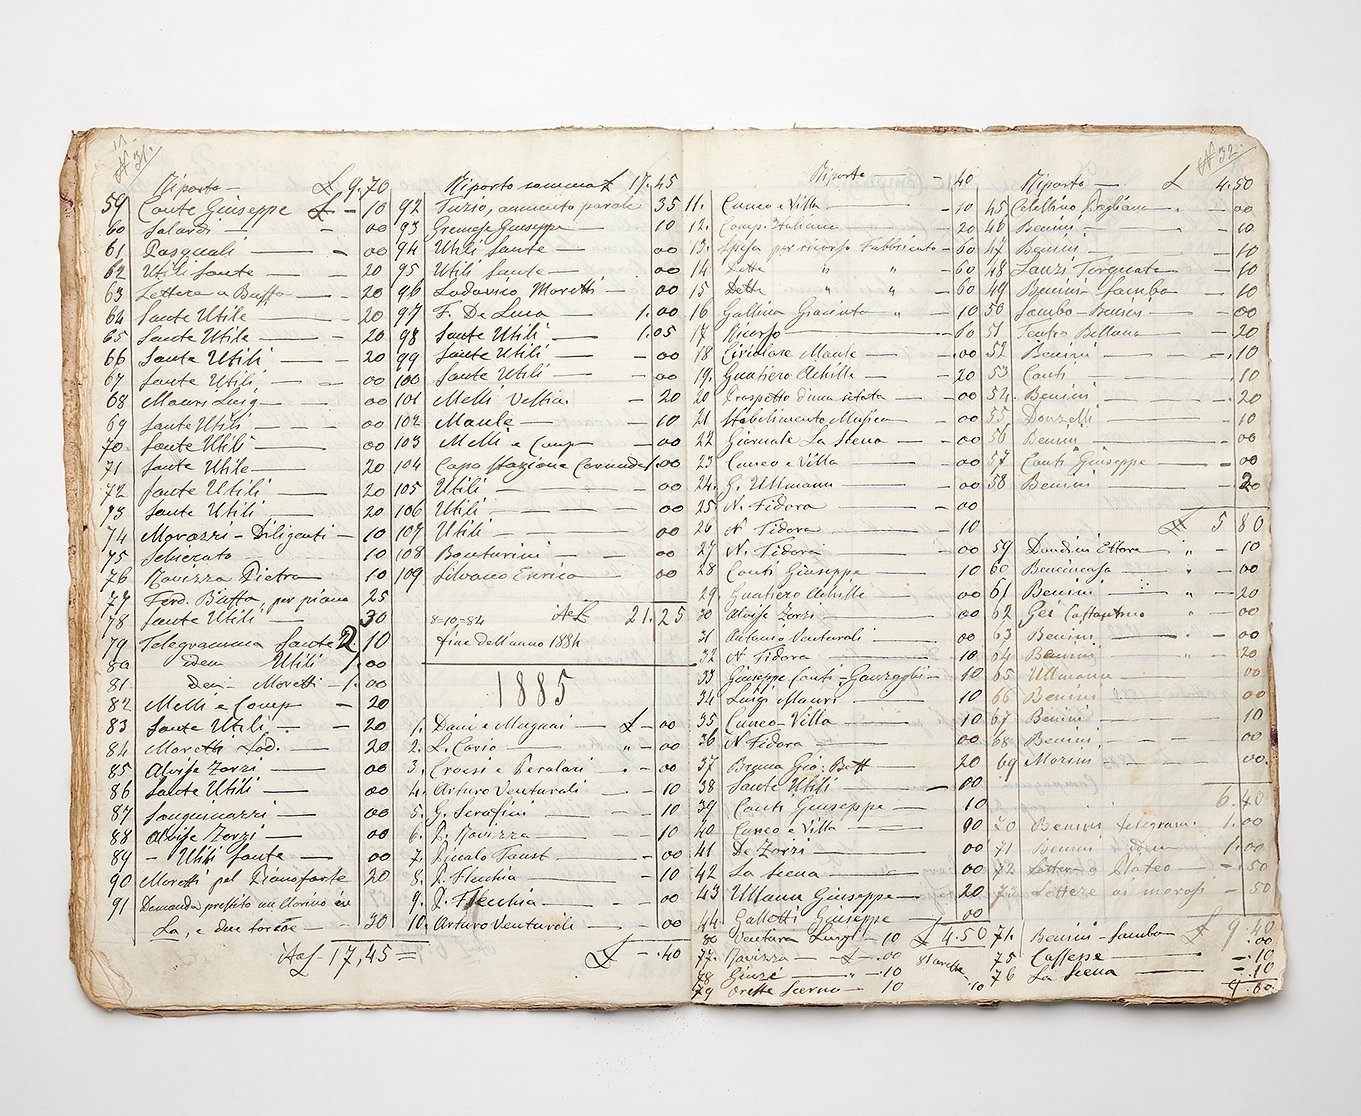 N° 31.
Riporto — £ 9.70
59 Conte Giuseppe £ — 10
60 Salardi — 00
61 Pasquali — 00
62 Utili Sante — 20
63 Lettera a Buffa — 20
64 Sante Utile — 20
65 Sante Utile — 20
66 Sante Utili — 20
67 Sante Utili — 00
68 Mauri Luig — 00
69 Sante Utili — 00
70. Sante Utili — 00
71 Sante Utile — 20
72 Sante Utili — 20
73 Sante Utili — 20
74 Morossi - Diligenti — 10
75 Schierato — 10
76 Ravizza Pietro — 10
77 Ferd. Buffa, per piano 25
78 Sante Utili — 30
79 Telegramma Sante 2 10
80 idem Utili 1.00
81. dem Moretti — 1.00
82 Melli e Comp — 20
83 Sante Utili — 20
84 Moretti Lod. — 20
85 Alvise Zorzi — 00
86 Sante Utili — 00
87 Sanguinazzi — 00
88 Alvise Zorzi — 00
89 — Utili Sante — 00
90 Moretti pel Pianoforte 20
91 Domanda prestito un Clarino in
La, e due torcoe — 30
It£ 17,45 =
Riporto somma £ 17.45
92 Tuzio, aumento parole 35
93 Gremese Giuseppe — 10
94 Utili Sante — 00
95 Utili Sante — 00
96 Lodovico Moretti — 00
97 F. De Luca — 1.00
98 Sante Utili — 1.05
99 Sante Utili — 00
100 Sante Utili — 00
101 Melli Vettia. — 20
102 Maule — 10
103 Melli e Comp — 00
104 Capo Stazione 1.00
105 Utili — 00
106 Utili — 00
107 Utili — 00
108 Bonturini — 00
109 Silvano Enrico — 00
8-10-84 It£ 21.25
fine dell'anno 1884
1885
1. Dani e Magnai — £ — 00
2. L. Corio — „ — 00
3. Crocsi e Peralari — 00
4. Arturo Venturali — 10
5. G. Serafini — 10
6. P. Ravizza — 10
7. Nicolo Faust — 00
8. P. Flechia — 10
9. P. Flechia — 00
10. Arturo Venturoli — 00
£ — .40
N° 32.
Riporto — 40
11. Cuneo e Villa — 10
12. Comp. Italiana — 20
13. Spesa per ricorso — 60
14 Detta „ „ — 60
15 Detta „ „ — 60
16 Gallina Giacinto „ 10
17 Ricorso — 60
18 Cividiare Maule — .00
19. Gualtiero Achille — 20
20 Prospetto d'una serata — 00
21 Stabilimento Musica — 00
22 Giornale La Scena — 00
23 Cuneo e Villa — 00
24. G. Ullmann — 00
25 N. Fidora — 00
26 N Fidora — 10
27 N. Fidora — 00
28 Conti Giuseppe — 10
29 Gualtiero Achille — 00
30 Alvise Zorzi — 00
31 Antonio Venturali — 00
32 N Fidora — 10
33 Giuseppe Conti - Gonzaghi — 10
34 Luigi Mauri — 00
35 Cuneo - Villa — 10
36 N. Fidora — 00
37 Bruna Gio. Batt — 20
38 Sante Utili — 00
39 Conti Giuseppe — 10
40 Cuneo e Villa — 90
41 De Zorzi — 00
42 La Scena — 00
43 Ullmann Giuseppe — 20
44 Gallotti Giuseppe — 00
£ 4.50
80 Ventura Luigi — 10
77. Ravizza — £ — .00
78 Giuzè — „ — 10
79 Oreste Scerno — 10
Riporto — £ 4.50
45 Celestino — 00
46 Benini — 10
47 Benini — 10
48 Lanzi Torquato — 10
49 Benini Sambo — 10
50 Sambo - Benini — 00
51 Teatro Belluno — 20
52 Benini — .10
53 Conti — .10
54. Benini — .20
55 Donzelli — 10
56 Benini — 00
57 Conti Giuseppe — 00
58 Benini — 20
It£ 5 80
59 Dondini Ettore „ — 10
60 Bencincasa — „ — 00
61 Benini „ — 20
62 Gei — „ — 00
63 Benini „ — 00
64 Benini „ — 20
65 Ullmann — 00
66 Benini — 00
67 Benini — 10
68 Benini. — 00
69 Morini — 00.
6.40
70 Benini telegram: 1.00
71 Benini idem 1.00
72 Lettera a Plateo — .50
73 Lettere ai morosi — .50
£ 9.40
74. Benini - Sambo .00
75 Caffesse — .10
76 La Scena — .10
9.60